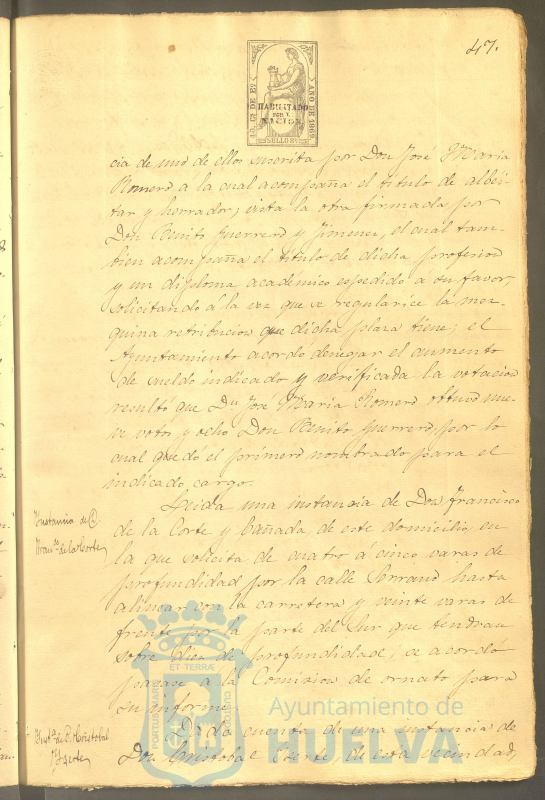 47.
AÑO DE 1869
HABILITADO
POR LA
NACION
SELLO 8º
cia de uno de ellos suscrita por Don José Maria
Romero a la cual acompaña el titulo de albei-
tar y herrador; vista la otra firmada por
Don Benito Guerrero y Jimenez, el cual tam-
bien acompaña el titulo de dicha profesion
y un diploma académico espedido a su favor,
solicitando á la vez que se regularice la mez-
quina retribucion que dicha plaza tiene; el
Ayuntamiento acordó denegar el aumento
de sueldo indicado y verificada la votacion
resultó que Dn José Maria Romero obtuvo nue-
ve votos y ocho Don Benito Guerrero, por lo
cual quedó el primero nombrado para el
indicado cargo.
Instancia de D.
Franco de la Corte
Leida una instancia de Don Francisco
de la Corte y Cañada de este domicilio, en
la que solicita de cuatro a cinco varas de
profundidad por la calle Serrano hasta
alinear con la carretera y veinte varas de
frente por la parte del Sur que tendran
sobre diez de profundidad, se acordó
pasase a la Comision de ornato para
su informe.
Dada cuenta de una instancia de
Don Cristobal de esta vecindad,
Insta de D. Cristobal
PORTUS MARIS
ET TERRÆ
CUSTODIA
Ayuntamiento de
HUELVA